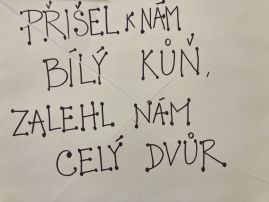 PŘIŠEL K NÁM
BÍLÝ KŮŇ,
ZALEHL NÁM
CELÝ DVŮR